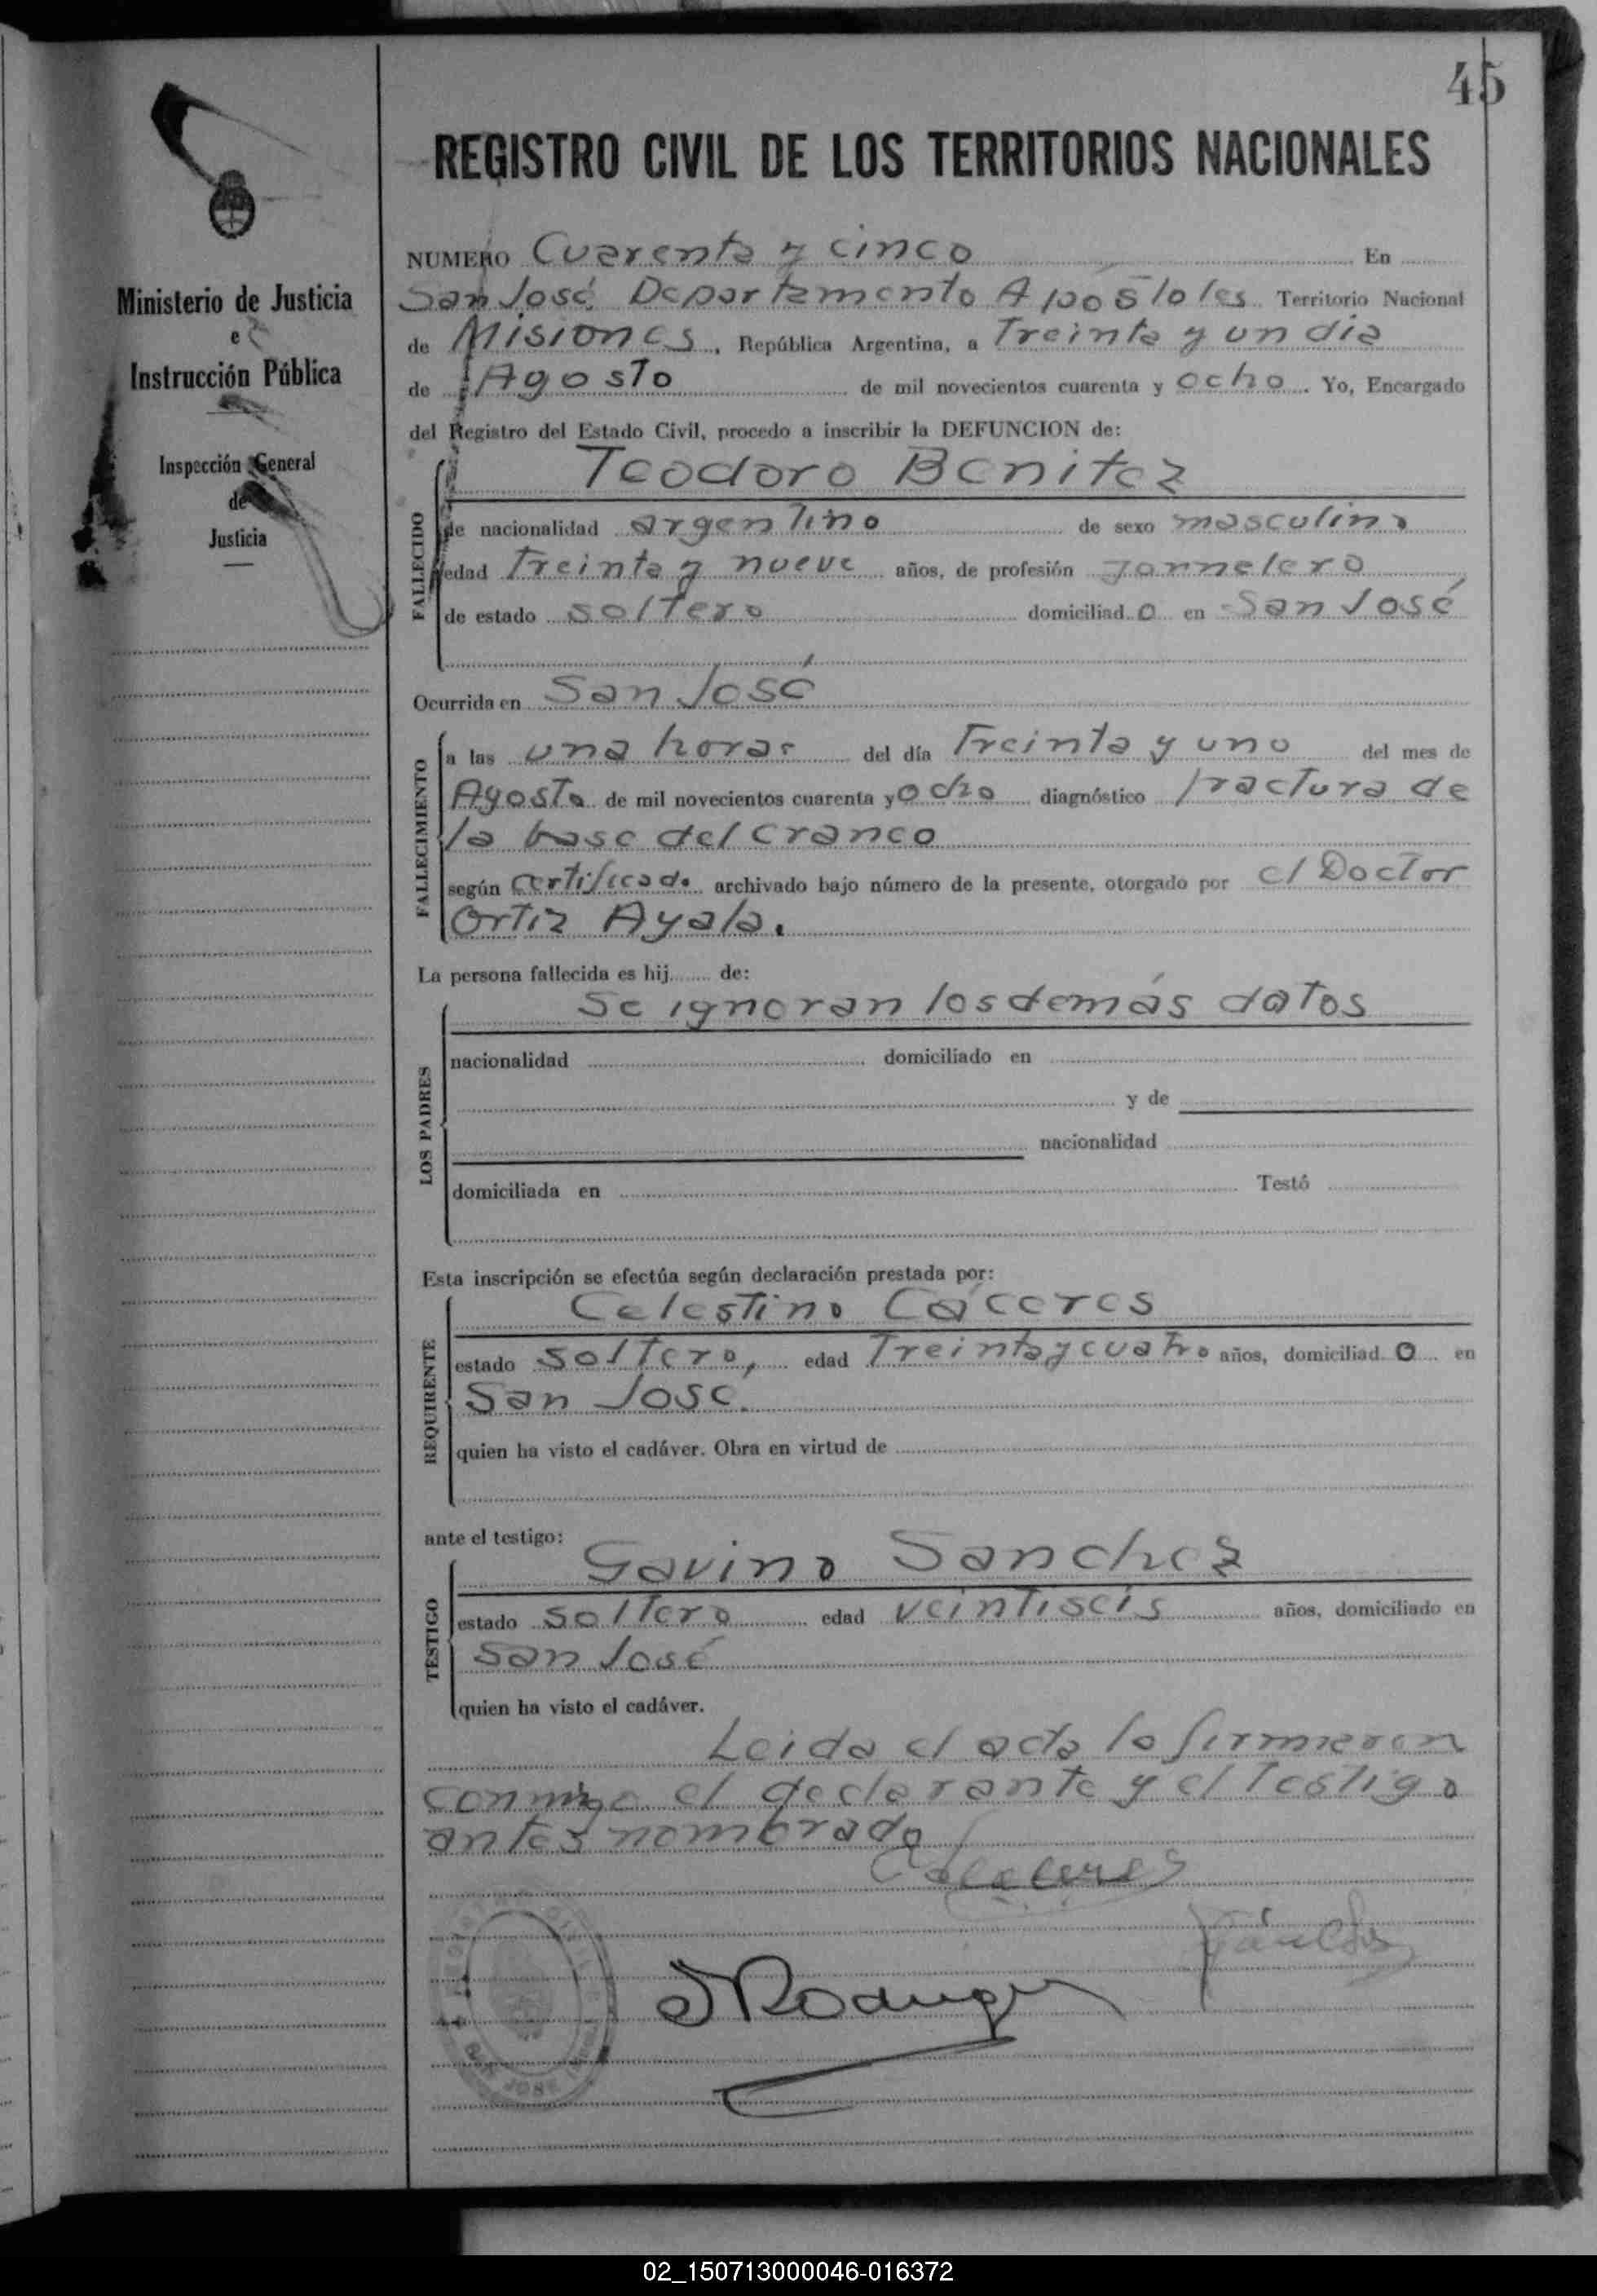 45
REGISTRO CIVIL DE LOS TERRITORIOS NACIONALES
Ministerio de Justicia
e
Instrucción Pública
Inspección General
de
Justicia
NUMERO Cuarenta y cinco En
San José Departamento Apóstoles Territorio Nacional
de Misiones, República Argentina, a Treinta y un dia
de Agosto de mil novecientos cuarenta y ocho. Yo, Encargado
del Registro del Estado Civil, procedo a inscribir la DEFUNCION de:
FALLECIDO
Teodoro Benitez
de nacionalidad argentino de sexo masculino
edad Treinta y nueve años, de profesión jornnelero
de estado soltero domiciliado en San José
Ocurrida en San José
FALLECIMIENTO
a las una horas del día Treinta y uno del mes de
Agosto de mil novecientos cuarenta y ocho diagnóstico fractura de
la base del craneo
según certificado archivado bajo número de la presente, otorgado por el Doctor
Ortiz Ayala.
La persona fallecida es hij de:
LOS PADRES
Se ignoran los demás datos
nacionalidad domiciliado en
y de
nacionalidad
domiciliada en Testó
Esta inscripción se efectúa según declaración prestada por:
REQUIRENTE
Celestino Cáceres
estado soltero, edad Treinta y cuatro años, domiciliado en
San Jose.
quien ha visto el cadáver. Obra en virtud de
ante el testigo:
TESTIGO
Gavino Sanchez
estado soltero edad veintiseis años, domiciliado en
San José
quien ha visto el cadáver.
Leida el acta la firmaron
conmigo el declarante y el Testigo
antes nombrado
SAN JOSE
02_150713000046-016372